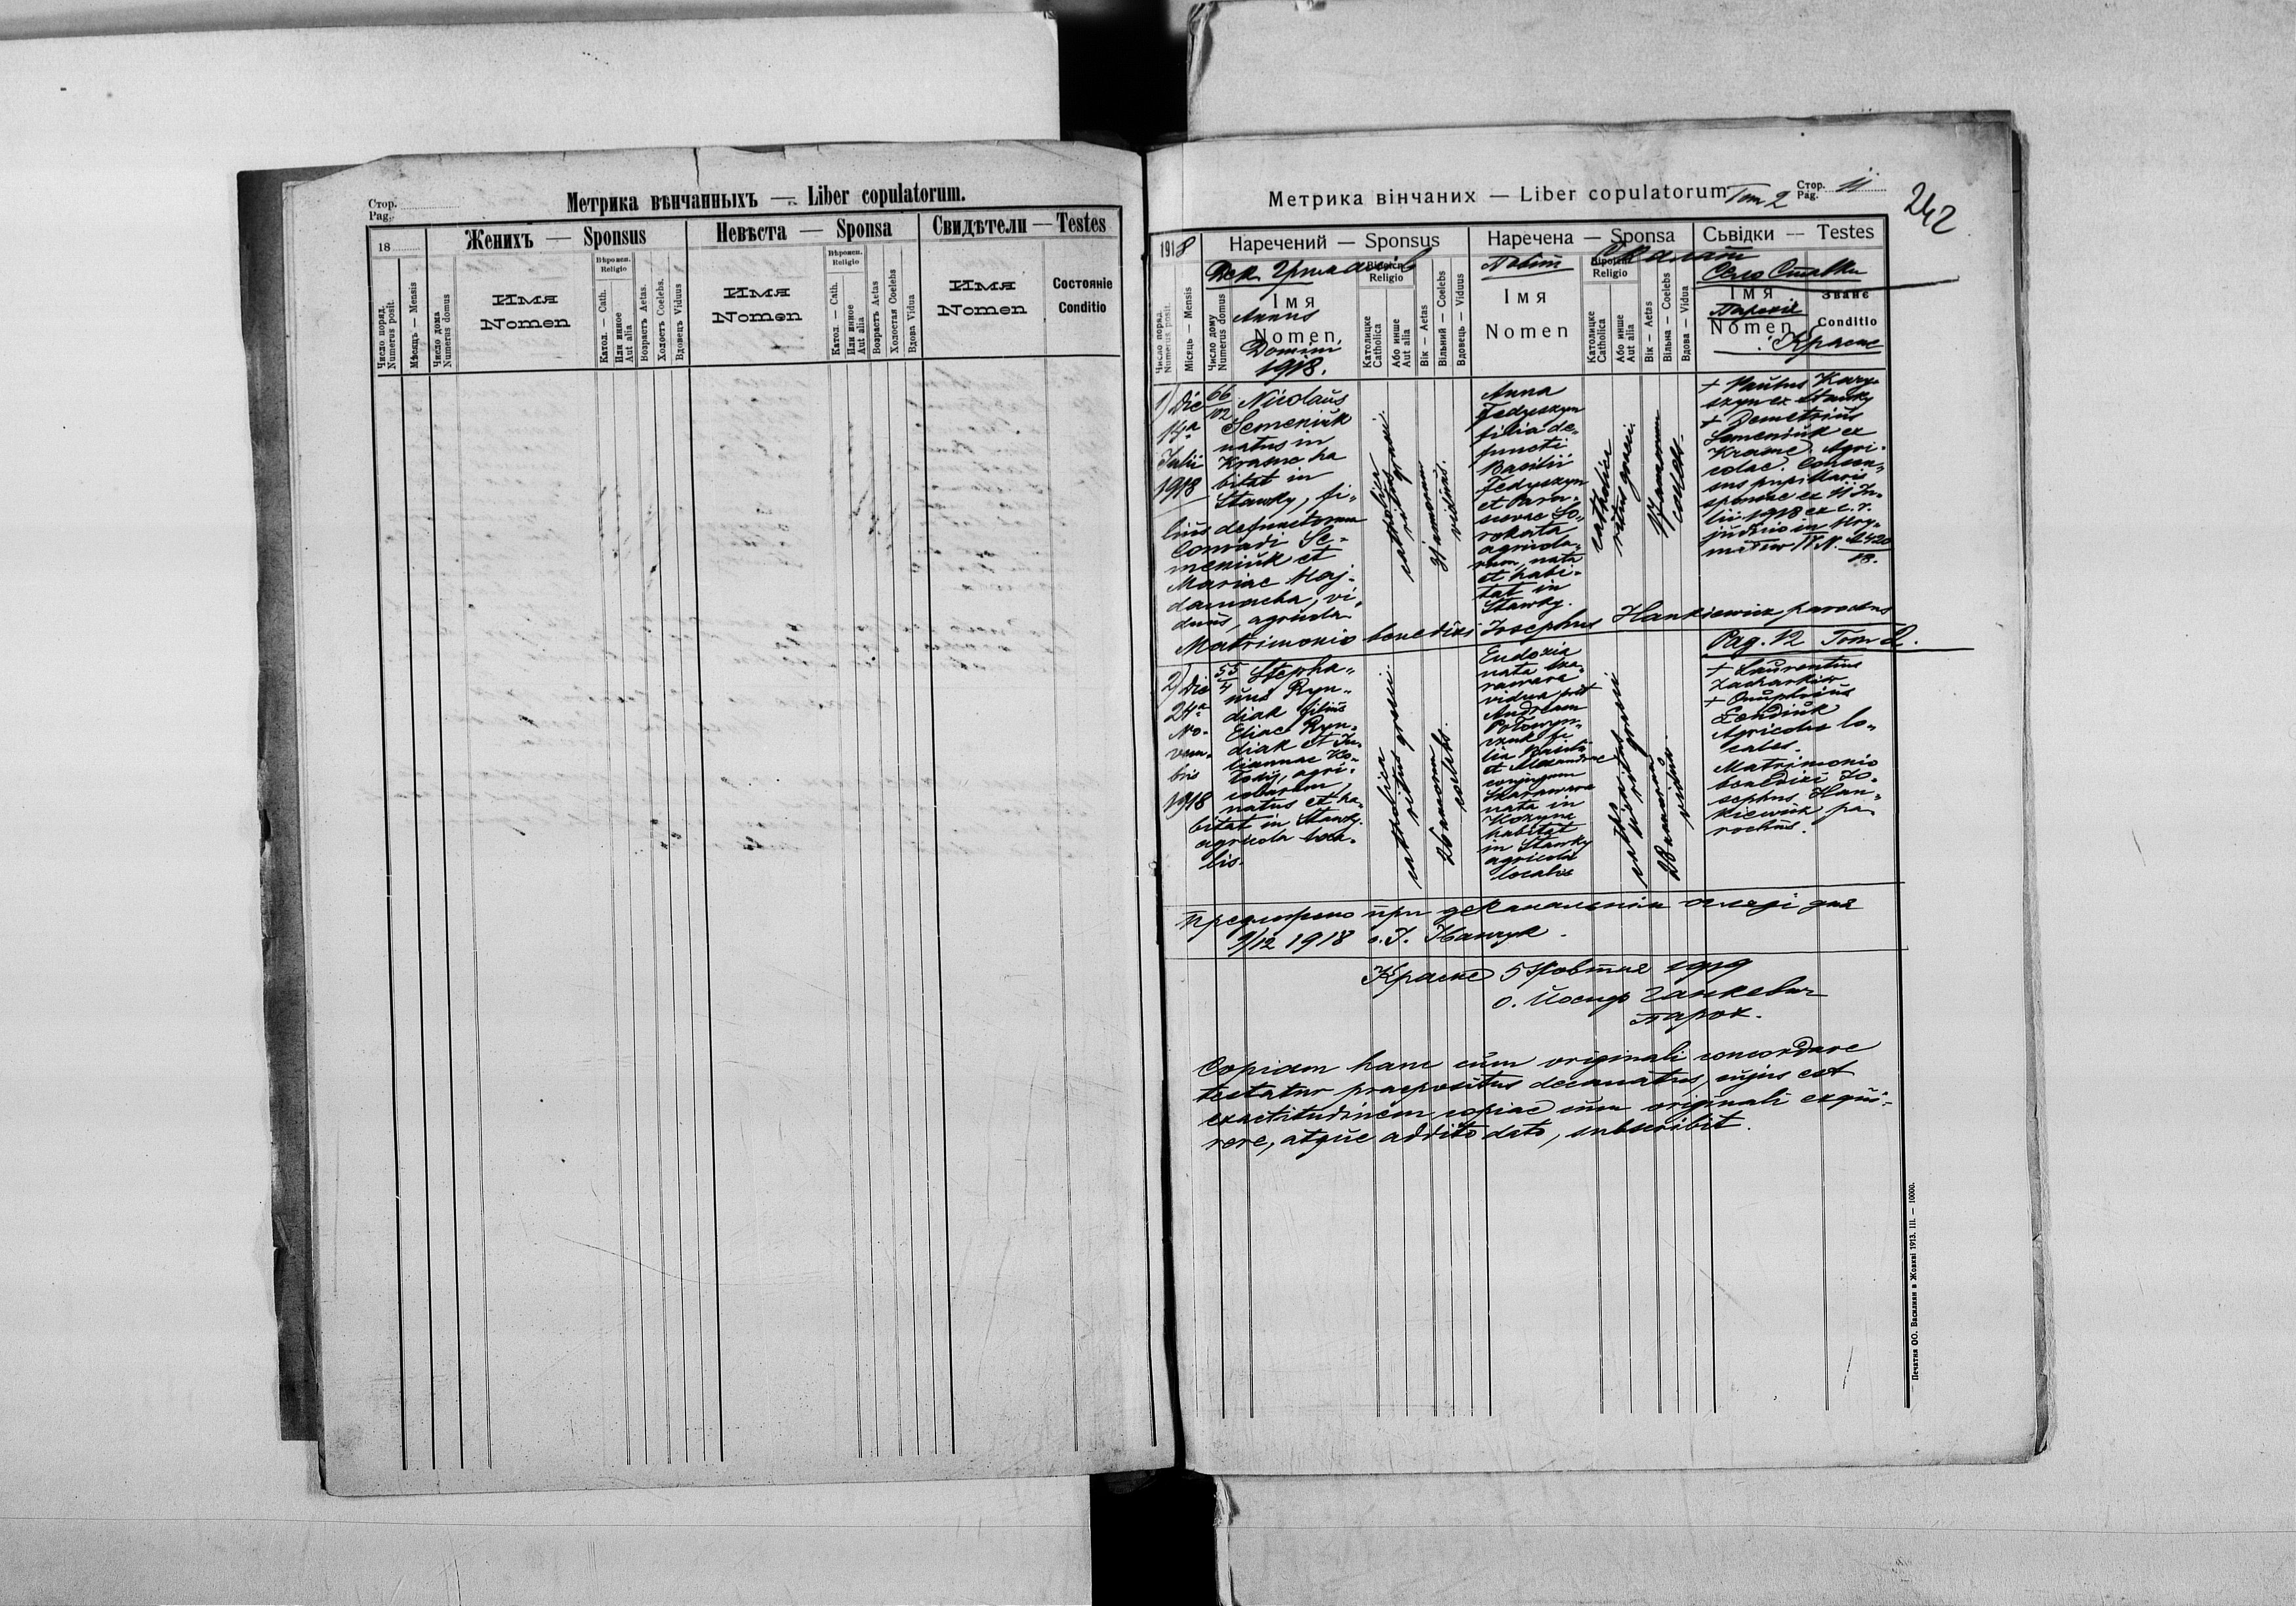 Стор.
Pag.
Метрика вѣнчанныхъ — Liber copulatorum.
18
Женихъ — Sponsus
Невѣста — Sponsa
Свидѣтели — Testes
Число поряд.
Numerus posit.
Мѣсяцъ — Mensis
Число дома
Numerus domus
Имя
Nomen
Вѣроисп.
Religio
Катол. — Cath.
Или инное
Aut alia
Возрастъ Aetas.
Холостъ Coelebs.
Вдовецъ Viduus
Имя
Nomen
Вѣроисп.
Religio
Катол. — Cath.
Или инное
Aut alia
Возрастъ Aetas
Холостая Coelebs
Вдова Vidua
Имя
Nomen
Состояніе
Conditio
Метрика вінчаних — Liber copulatorum
Том 2
Стор.
Pag.
11
242
1918
Наречений — Sponsus
Наречена — Sponsa
Сьвідки — Testes
Дек. Грималів
Повіт Скалат
Село Ставки
Парохія
Красне
Число поряд.
Numerus posit.
Місяць — Mensis
Число дому
Numerus domus
Імя
Nomen
Annus
Domini
1918.
Віроісп.
Religio
Католицке
Catholica
Або инше
Aut alia
Вік — Aetas
Вільний — Coelebs
Вдовець — Viduus
Імя
Nomen
Віроісп.
Religio
Католицке
Catholica
Або инше
Aut alia
Вік — Aetas
Вільна — Coelebs
Вдова — Vidua
Імя
Nomen
Званє
Conditio
1) Die
14a
Julii
1918
66
102
Nicolaus
Semeniuk
natus in
Krasne ha
bitat in
Stawky, fi-
lius defunctorum
Conradi Se-
meniuk et
Mariae Haj-
damacha, vi-
duus, agricola
catholica
ritus graeci.
annorum
viduus.
Anna
Fedyszyn
filia de-
functi
Basilii
Fedyszyn
et Paras-
cevae So-
rokata
agricola-
rum, nata
et habi-
tat in
Stawky.
catholica
ritus graeci.
annorum
coelebs
+ Paulus Kary-
szyn ex Stawky
+ Demetrius
Semeniuk ex
Krasne. Agri-
colae. Consen-
sus pupillaris
sponsae ex 11 Ju-
lii 1918 ex c. r.
judicio in Hry-
małów
18.
Matrimonio benedixi Josephus Hankiewicz parochus
Pag. 12 Tom 2.
2) Die
24a
No-
vem-
bris
1918
55
4
Stepha-
nus Ryn-
diak filius
Eliae Ryn-
diak et Ju-
liannae Ko-
lodij, agri-
colarum,
natus et ha-
bitat in Stawky
agricola loca-
lis.
catholica
ritus graeci.
26 annorum
coelebs.
Eudoxia
nata Ska-
rawara
vidua post
Andream
Połowyn-
czuk fi-
lia Basilii
et Alexandrae
conjugum
Skarawara
nata in
Kozyna
habitat
in Stawky
agricola
localis
catholica
ritus graeci
28 annorum
vidua.
+ Laurentius
Zacharkiw
+ Onuphrius
Londiuk
Agricolae lo-
cales.
Matrimonio
benedixi Jo-
sephus Han-
kiewicz pa-
rochus.
Предложено при деканальнім огляді дня
9/12 1918 о. І.
Красне 5 Жовтня 1919
о. Йосиф Ганкевич
парох.
Copiam hanc cum originali concordare
testatur praepositus decanatus, cujus est
exactitudinem copiae cum originali exqui-
rere, atque addito dato, subscribit.
Печатня ОО. Василиян в Жовкві 1913. III. — 10000.